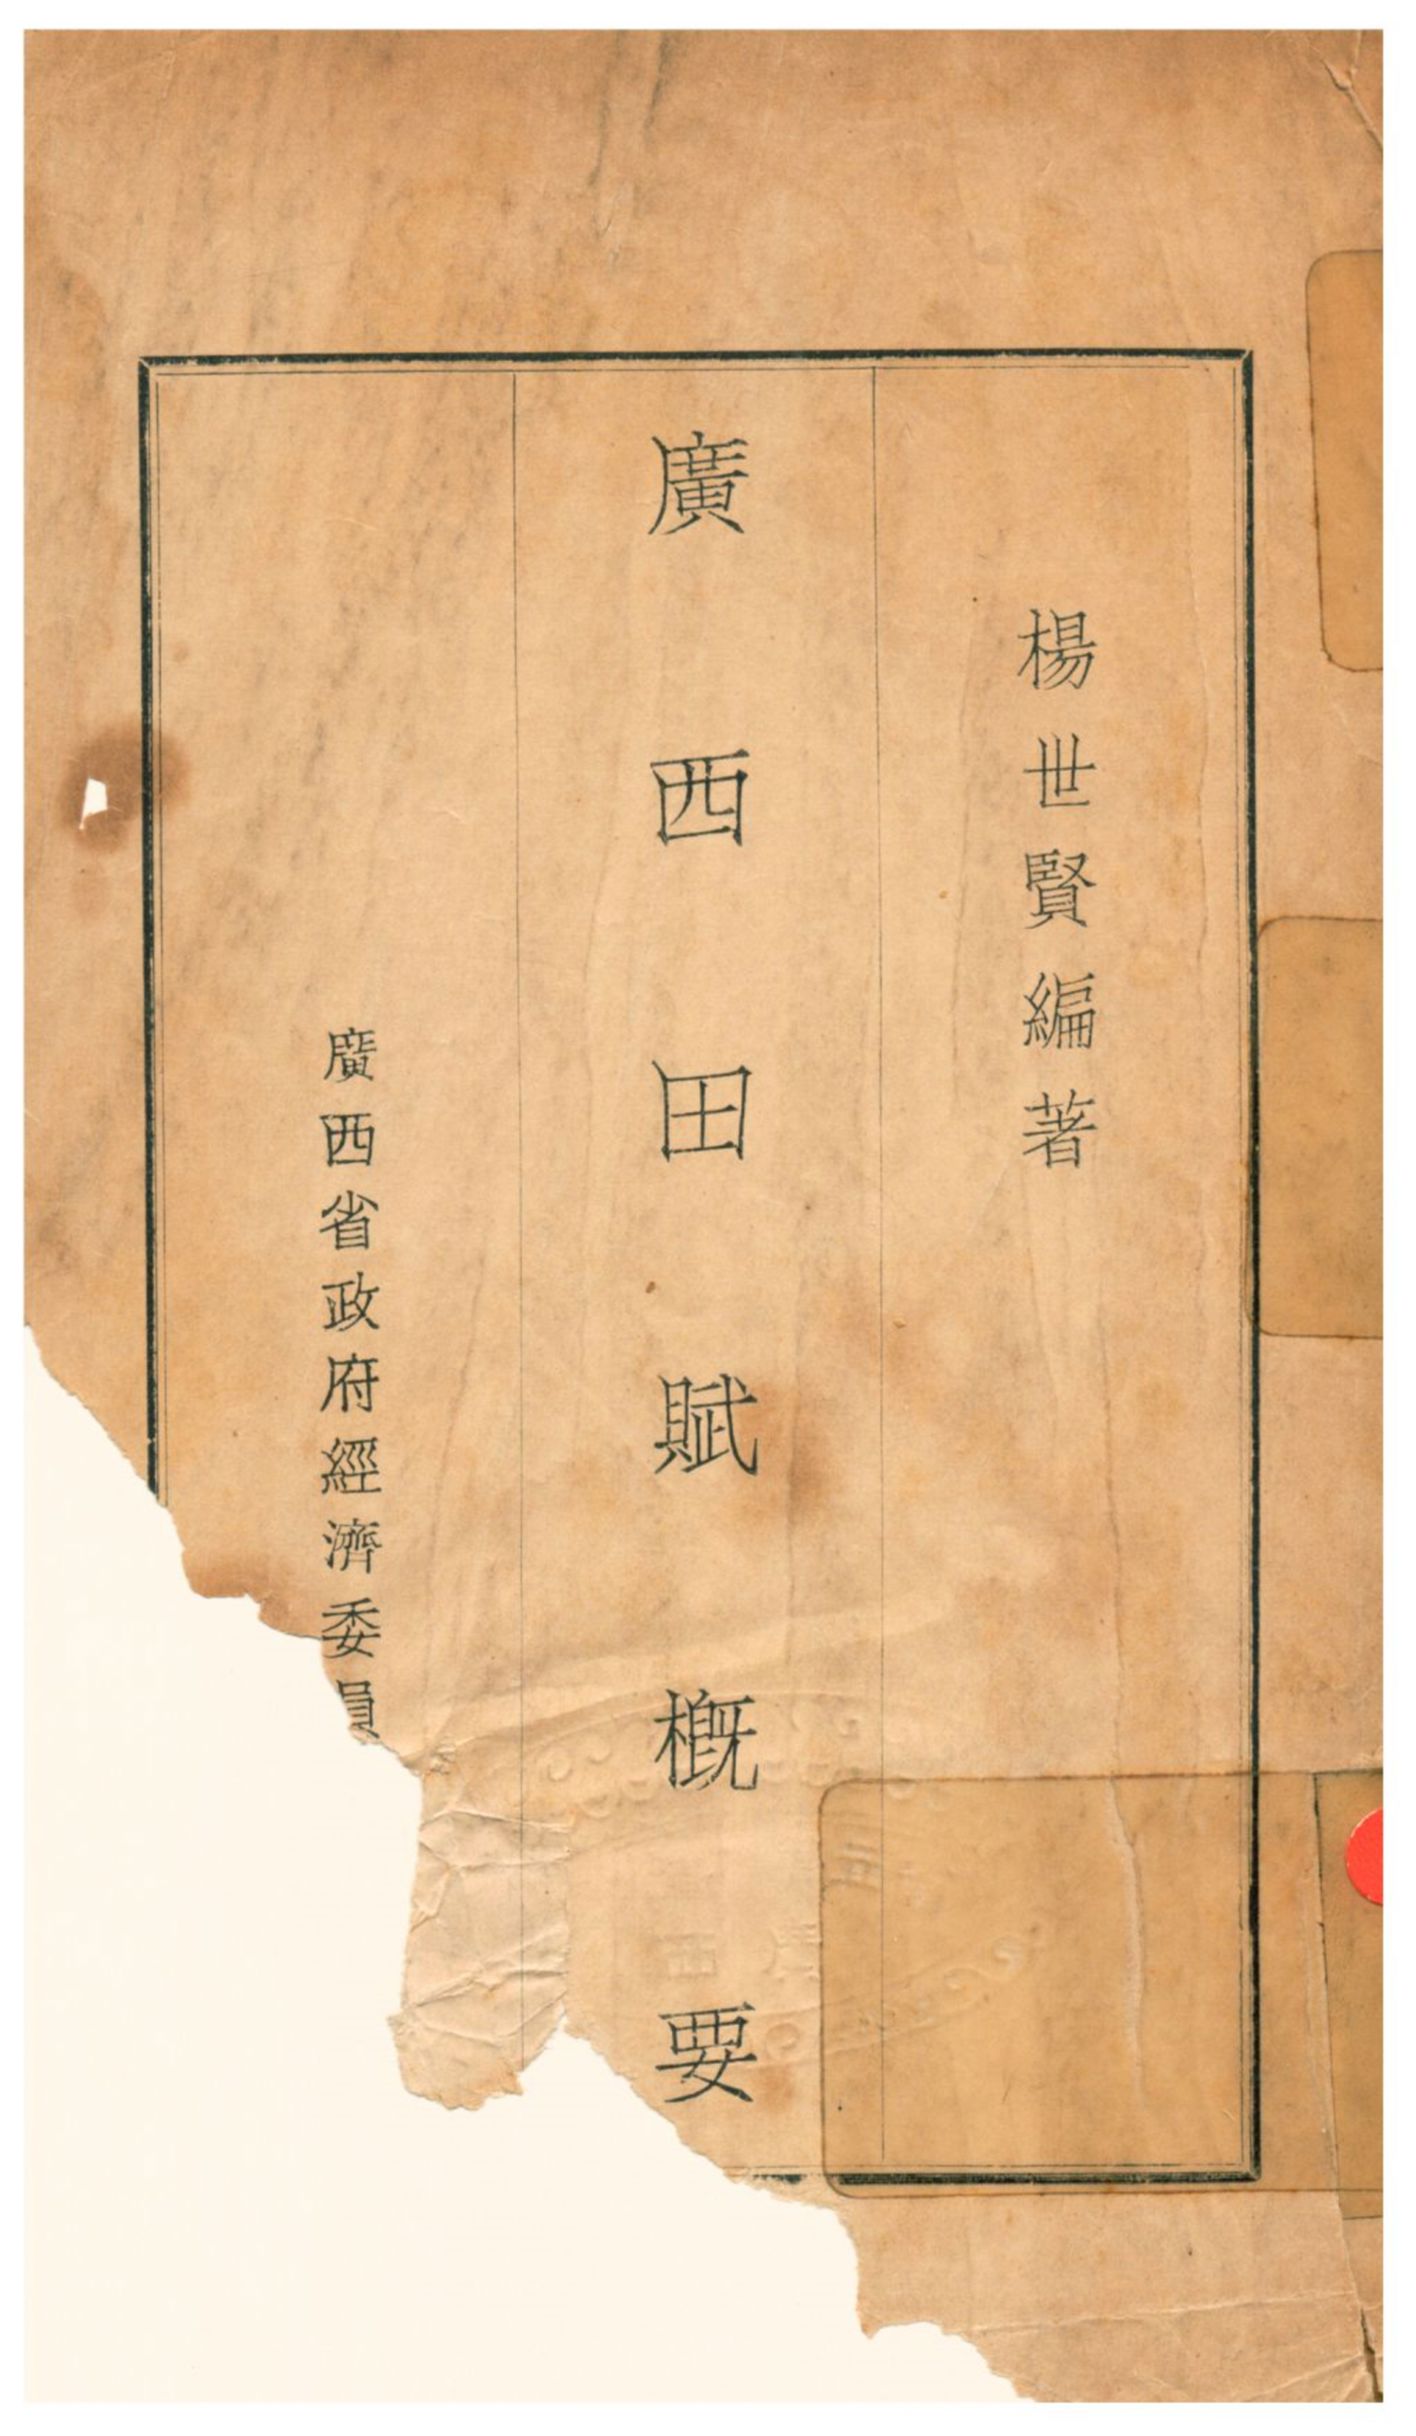 楊世賢編著
廣西田賦概要
廣西省政府經濟委員